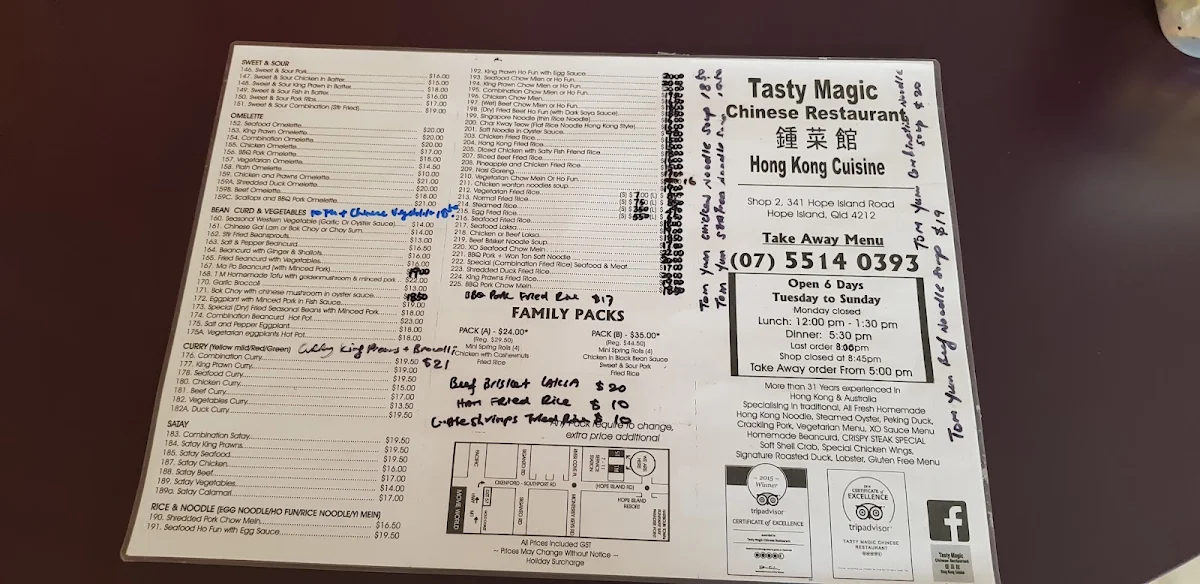 SWEET & SOUR
146. Sweet & Sour Pork $16.00
147. Sweet & Sour Chicken in Batter $15.00
148. Sweet & Sour King Prawn in Batter $18.00
149. Sweet & Sour Fish in Batter $16.00
150. Sweet & Sour Pork Ribs $17.00
151. Sweet & Sour Combination (Stir Fried) $19.00
OMELETTE
152. Seafood Omelette $20.00
153. King Prawn Omelette $20.00
154. Combination Omelette $20.00
155. Chicken Omelette $17.00
156. BBQ Pork Omelette
157. Vegetarian Omelette $14.50
158. Plain Omelette $10.00
159. Chicken and Prawns Omelette $21.00
159A. Shredded Duck Omelette $20.00
159B. Beef Omelette $18.00
159C. Scallops and BBQ Pork Omelette $21.00
BEAN CURD & VEGETABLES
160. Seasonal Western Vegetable (Garlic Or Oyster Sauce) $14.00
161. Chinese Gai Lam or Bok Choy or Choy Sum $14.00
162. Stir Fried Beansprouts $13.00
163. Salt & Pepper Beancurd $16.50
164. Beancurd with Ginger & Shallots $16.00
165. Fried Beancurd with Vegetables $16.00
167. Ma Po Beancurd (with Minced Pork)
168. T.M Homemade Tofu with goldenmushroom & minced pork $22.00
170. Garlic Broccoli $13.00
171. Bok Choy with chinese mushroom in oyster sauce
172. Eggplant with Minced Pork in Fish Sauce $19.00
173. Special (Dry) Fried Seasonal Beans with Minced Pork $18.00
174. Combination Beancurd Hot Pot $23.00
175. Salt and Pepper Eggplant $18.00
175A. Vegetarian eggplants Hot Pot $18.00
CURRY (Yellow mild/Red/Green) Curry King Prawns + Broccolli $21
176. Combination Curry $19.50
177. King Prawn Curry $19.00
178. Seafood Curry $19.50
180. Chicken Curry $15.00
181. Beef Curry $17.00
182. Vegetables Curry $13.50
182A. Duck Curry $19.50
SATAY
183. Combination Satay $19.50
184. Satay King Prawns $19.50
185. Satay Seafood $19.50
187. Satay Chicken $16.00
188. Satay Beef $17.00
189. Satay Vegetables $14.00
189a. Satay Calamari $17.00
RICE & NOODLE (EGG NOODLE/HO FUN/RICE NOODLE/YI MEIN)
190. Shredded Pork Chow Mein $16.50
191. Seafood Ho Fun with Egg Sauce $19.50
192. King Prawn Ho Fun with Egg Sauce
193. Seafood Chow Mien or Ho Fun
194. King Prawn Chow Mien or Ho Fun
195. Combination Chow Mien or Ho Fun
196. Chicken Chow Mien
197. (Wet) Beef Chow Mien or Ho Fun
198. (Dry) Fried Beef Ho Fun (with Dark Soya Sauce)
199. Singapore Noodle (thin Rice Noodle)
200. Char Kway Teow (Flat Rice Noodle Hong Kong Style)
201. Soft Noodle in Oyster Sauce
203. Chicken Fried Rice
204. Hang Kong Fried Rice
205. Diced Chicken with Salty Fish Friend Rice
207. Sliced Beef Fried Rice
208. Pineapple and Chicken Fried Rice
209. Nasi Goreng
210. Vegetarian Chow Mein Or Ho Fun
211. Chicken wonton noodles soup
212. Vegetarian Fried Rice
213. Normal Fried Rice
214. Steamed Rice
215. Egg Fried Rice
216. Seafood Fried Rice
217. Seafood Laksa
218. Chicken or Beef Laksa
219. Beef Brisket Noodle Soup
220. XO Seafood Chow Mein
221. BBQ Pork + Won Ton Soft Noodle
222. Special (Combination Fried Rice) Seafood & Meat
223. Shredded Duck Fried Rice
224. King Prawns Fried Rice
225. BBQ Pork Chow Mein
BBQ Pork Fried Rice $17
FAMILY PACKS
PACK (A) - $24.00*
(Reg. $29.50)
Mini Spring Rolls (4)
Chicken with Cashewnuts
Fried Rice
PACK (B) - $35.00*
(Reg. $44.50)
Mini Spring Rolls (4)
Chicken in Black Bean Sauce
Sweet & Sour Pork
Fried Rice
Beef Brisket Laksa $20
Ham Fried Rice $10
Little shrimps Fried Rice $10
Any Pack require to change,
extra price additional
MOVIE WORLD
OXENFORD - SOUTHPORT RD
(HOPE ISLAND RD)
HOPE ISLAND
RESORT
All Prices Included GST
~ Prices May Change Without Notice ~
Holiday Surcharge
Tom Yum Chicken Noodle Soup 18.50
Tasty Magic
Chinese Restaurant
鍾菜館
Hong Kong Cuisine
Shop 2, 341 Hope Island Road
Hope Island, Qld 4212
Take Away Menu
(07) 5514 0393
Open 6 Days
Tuesday to Sunday
Monday closed
Lunch: 12:00 pm - 1:30 pm
Dinner: 5:30 pm
Last order 8:00pm
Shop closed at 8:45pm
Take Away order From 5:00 pm
More than 31 Years experienced In
Hong Kong & Australia
Specialising in traditional, All Fresh Homemade
Hong Kong Noodle, Steamed Oyster, Peking Duck,
Crackling Pork, Vegetarian Menu, XO Sauce Menu
Homemade Beancurd, CRISPY STEAK SPECIAL
Soft Shell Crab, Special Chicken Wings,
Signature Roasted Duck, Lobster, Gluten Free Menu
Tom Yum Combination Noodle
Soup $20
Tom Yum Beef Noodle Soup $19
2015
Winner
tripadvisor
CERTIFICATE of EXCELLENCE
Tasty Magic Chinese Restaurant
CERTIFICATE of
EXCELLENCE
tripadvisor
TASTY MAGIC CHINESE
RESTAURANT
f
Tasty Magic
Chinese Restaurant
鍾菜館
Hong Kong Cuisine